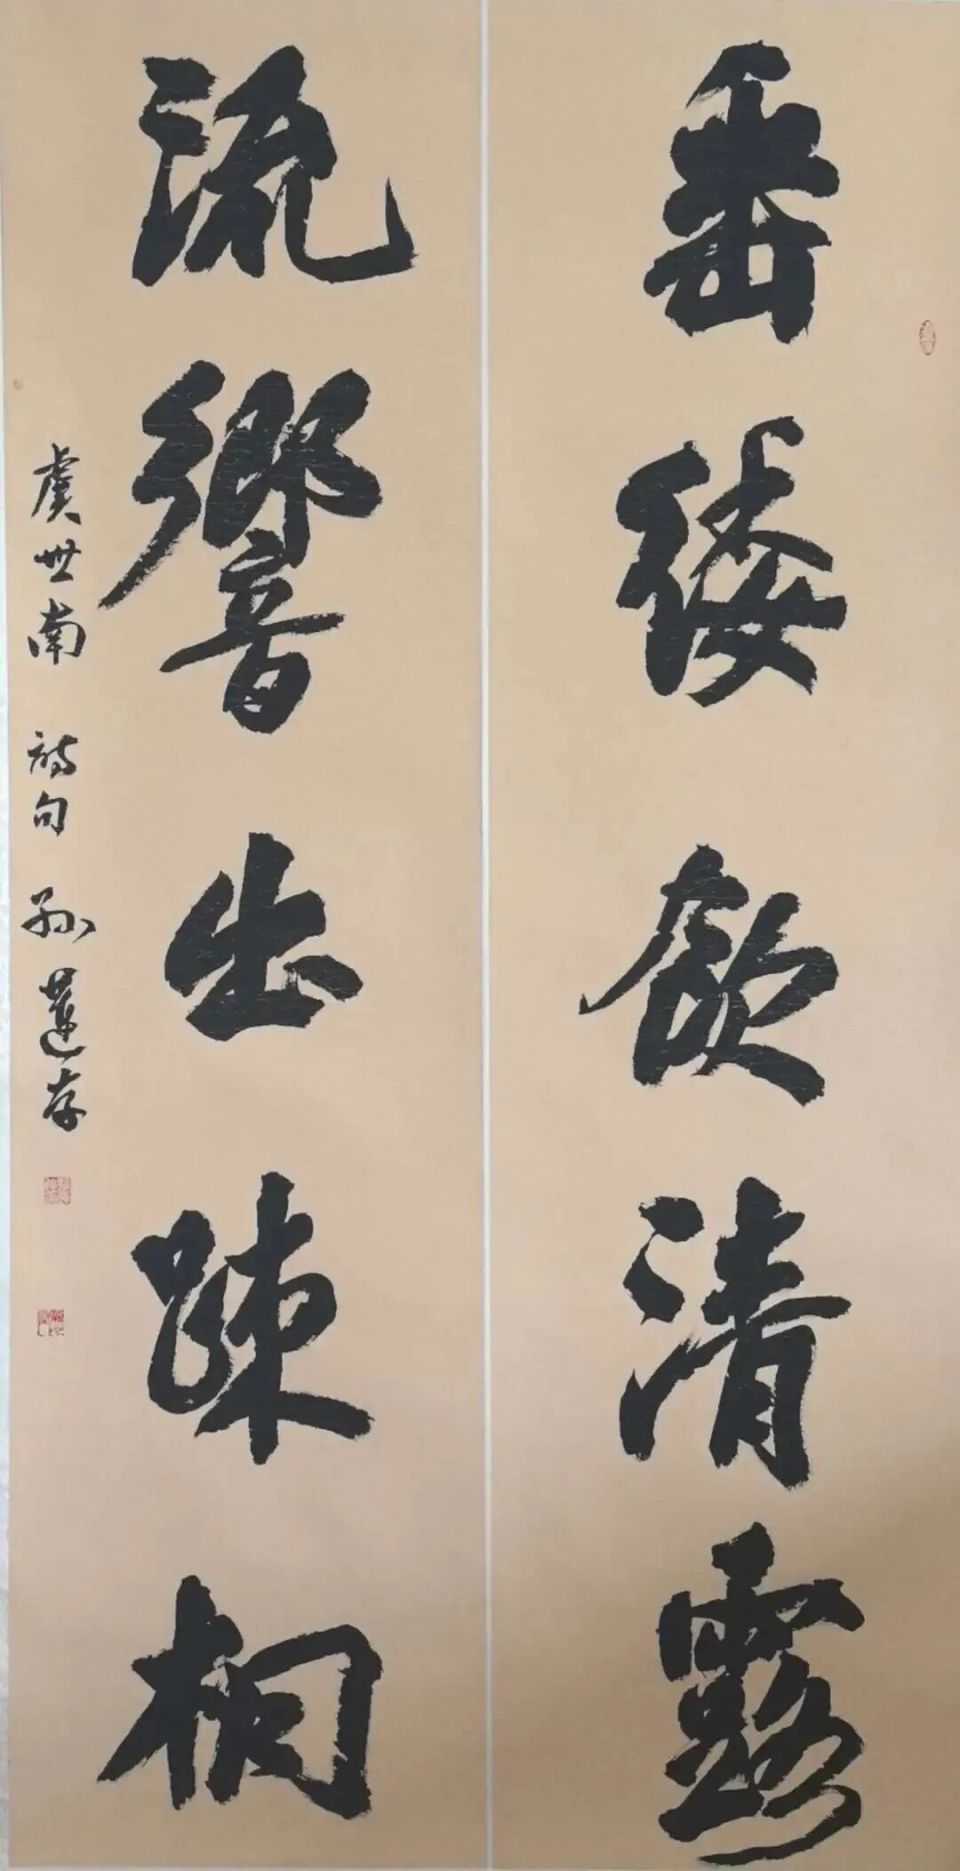 垂緌飲清露
流響出踈桐
虞世南 詩句 孫蓮存